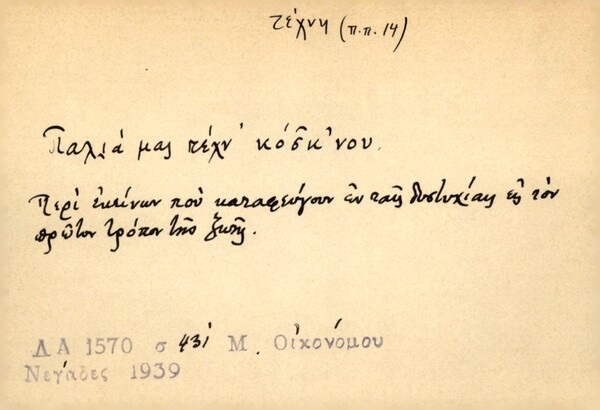 τέχνη (π.π. 14)
Παλιά μας τέχν' κόσκ'νου.
Περὶ ἐκείνων ποὺ καταφεύγουν ἐν ταῖς δυστυχίαις εἰς τὸν
πρῶτον τρόπον τῆς ζωῆς.
ΛΑ 1570 σ 431 Μ. Οἰκονόμου
Νεγάδες 1939